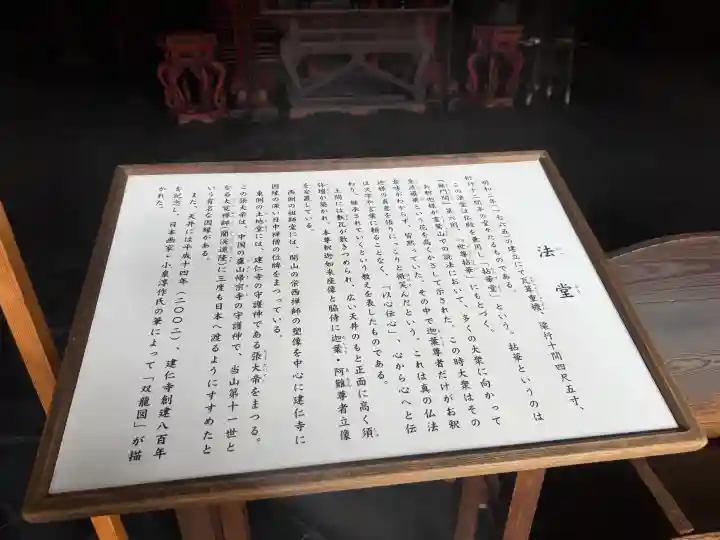 法堂
明和二年(一七六五)の建立にて瓦葺重層、深行十間四尺五寸、
桁行十二間半の堂々たるものである。
この法堂は仏殿を兼用し「拈華堂」という。拈華というのは
「無門関」第六則、「世尊拈華」にもとづく。
お釈迦様が霊鷲山での説法において、多くの大衆に向かって
金波羅華という花を高くかざして示された。この時大衆はその
意味がわからず、皆黙っていた。その中で迦葉尊者だけがお釈
迦様の真意を悟りにっこりと微笑んだという。これは真の仏法
は文字や言葉に頼ることなく、「以心伝心」、心から心へと伝
わり、継承されていくという教えを表したものである。
土間には敷瓦が敷きつめられ、広い天井のもと正面に高く須
弥壇が築かれ、本尊釈迦如来座像と脇侍に迦葉・阿難尊者立像
を安置している。
西側の祖師堂には、開山の栄西禅師の塑像を中心に建仁寺に
因縁の深い日中禅僧の位牌をまつっている。
東側の土地堂には、建仁寺の守護神である張大帝をまつる。
この張大帝は、中国の廬山帰宗寺の守護神で、当山第十一世と
なる大覚禅師(蘭渓道隆)に三度も日本へ渡るようにすすめたと
いう有名な因縁がある。
また、天井には平成十四年(二〇〇二)、建仁寺創建八百年
を記念し、日本画家・小泉淳作氏の筆によって「双龍図」が描
かれた。